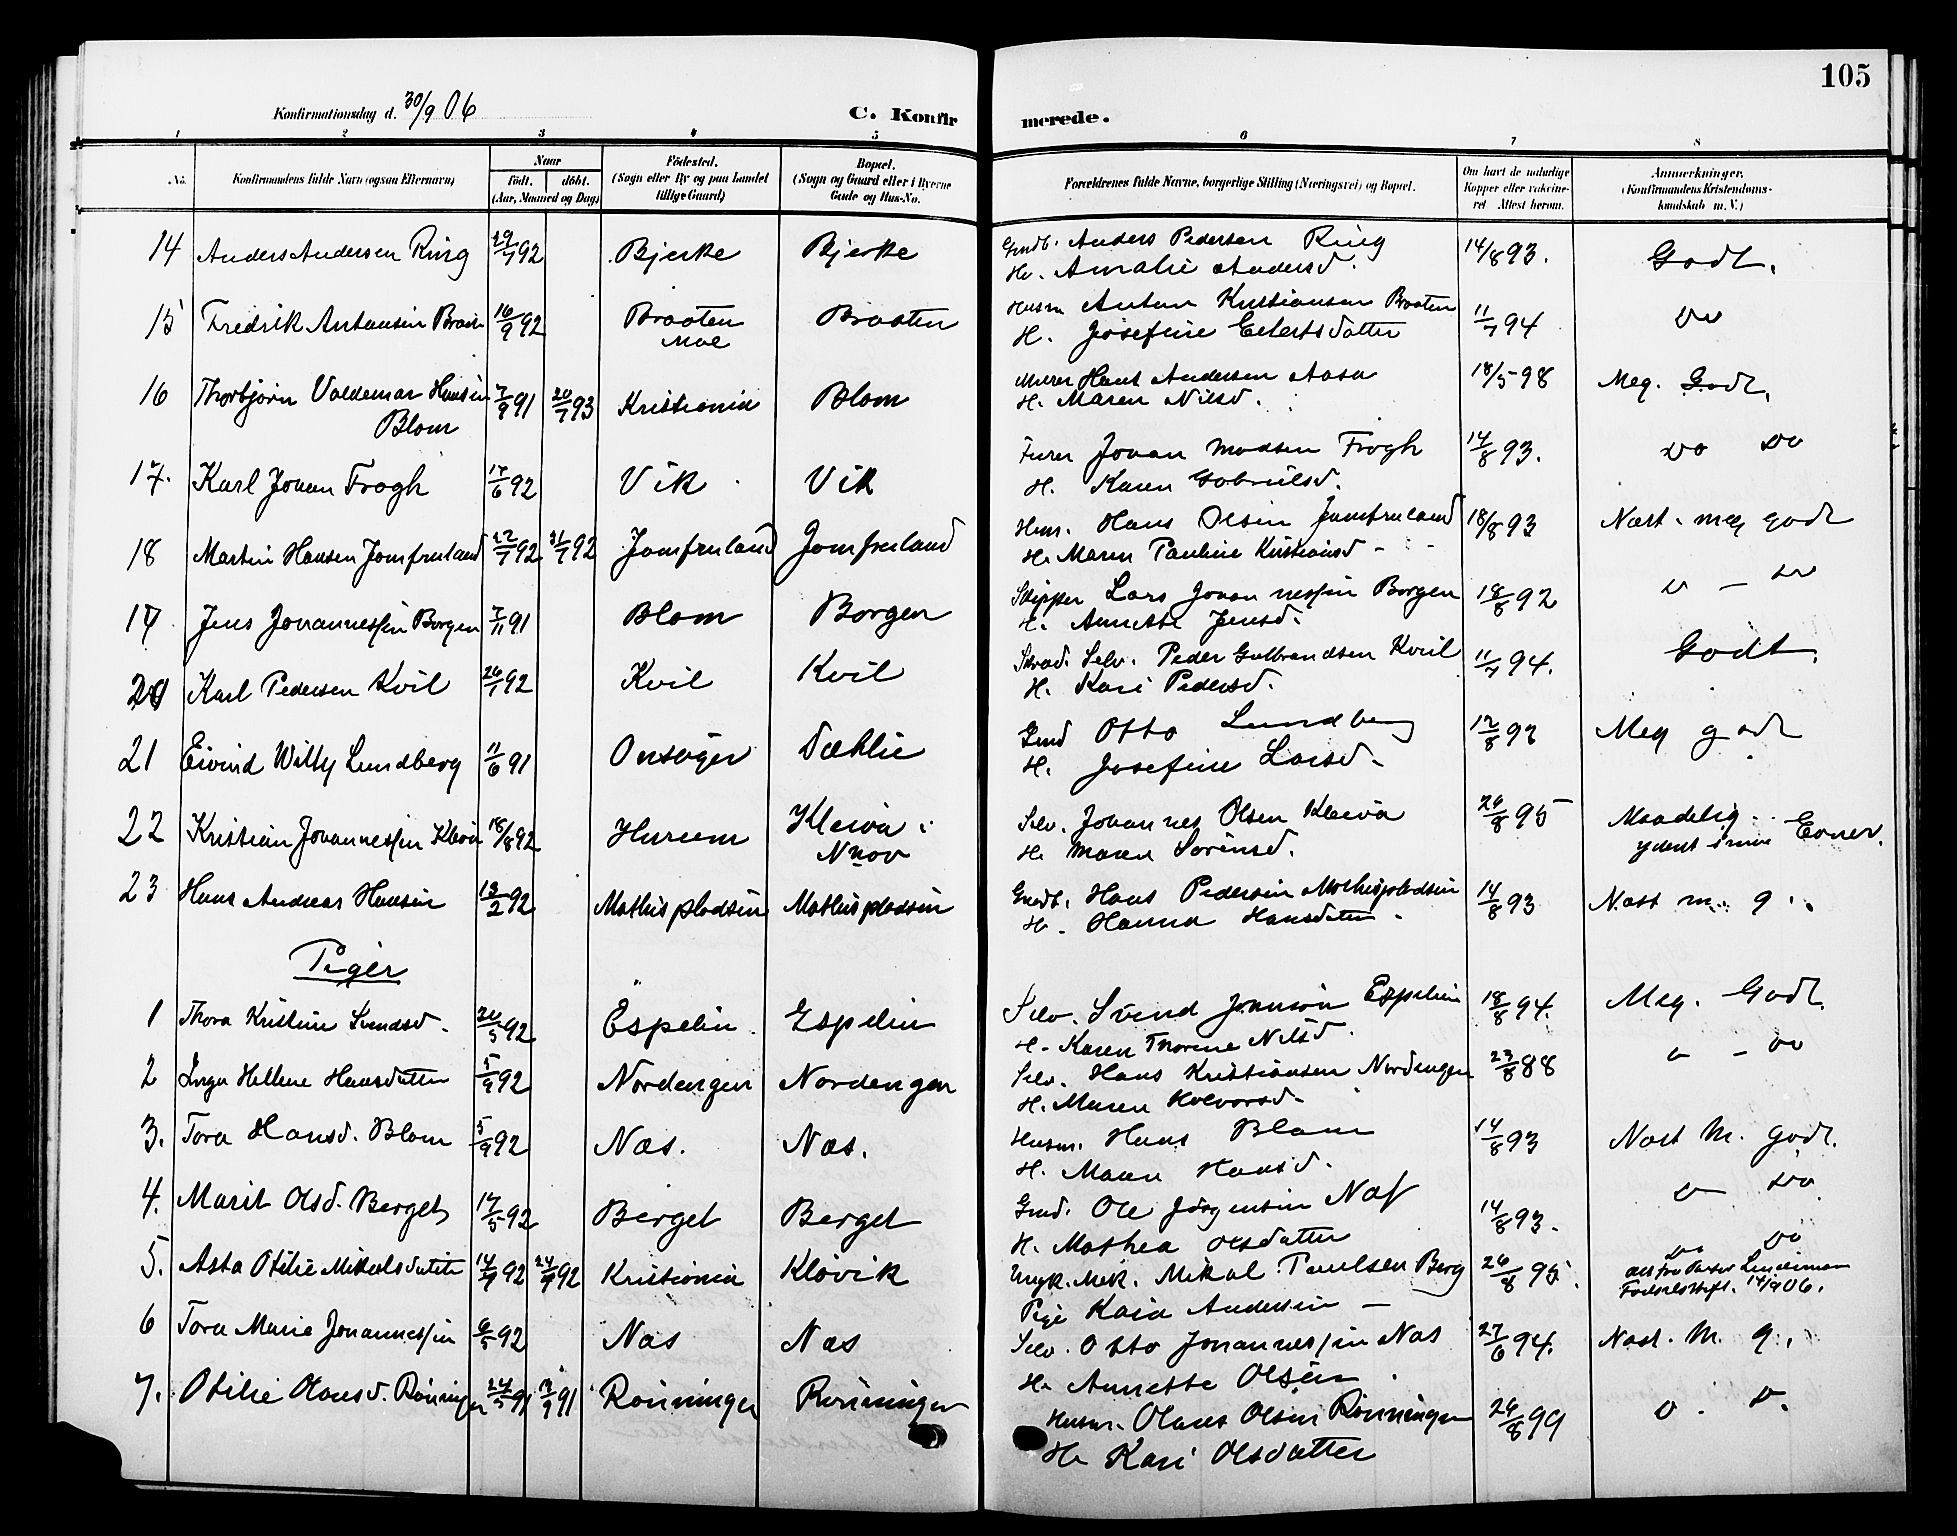 105
Konfirmationsdag d. 30/9 06
C. Konfirmerede.
1 2 3 4 5 6 7 8
No. Konfirmandens fulde Navn (ogsaa Efternavn)
Naar
Födt. döbt.
(Aar, Maaned og Dag)
Födested.
(Sogn eller By og paa Landet
tillige Gaard)
Bopæl.
(Sogn og Gaard eller i Byerne
Gade og Hus-No.
Forældrenes fulde Navne, borgerlige Stilling (Næringsvei) og Bopæl.
Om havt de naturlige
Kopper eller vakcine-
ret Attest herom.
Anmærkninger.
(Konfirmandens Kristendoms-
kundskab m. V.)
14 Anders Andersen Ring 29/7 92 Bjerke Bjerke Gmdb. Anders Pedersen Ring 14/8 93. Godt.
H. Amalie Andersd.
15 Fredrik Antonsen Braaten 16/9 92 Braaten Braaten Husm Anton Kristiansen Braaten 11/7 94 Do
Moe H. Josefine Eilertsdatter
16 Thorbjörn Valdemar Hansen 7/9 91 20/7 93 Kristiania Blom Murer Hans Andersen Aasa 18/5 98 Meg. Godt.
Blom H. Maren Nilsd.
17. Karl Johan Frogh 17/6 92 Vik Vik Furer Johan Madsen Frogh 14/8 93. Do Do
H. Karen Gabrielsd.
18 Martin Hansen Jomfruland 22/7 92 31/7 92 Jomfruland Jomfruland Hus. Hans Olsen Jomfruland 18/8 93 Næst. meg godt
H. Maren Pauline Kristiansd -
19 Jens Johannessen Borgen 7/11 91 Blom Borgen Skipper Lars Johannessen Borgen 18/8 92 D - Do
H. Annette Jensd.
20 Karl Pedersen Kvil 26/1 92 Kvil Kvil Selv. Peder Gulbrandsen Kvil 11/7 94. Godt.
H. Kari Pedersd.
21 Eivind Willy Lundberg 11/6 91 Onsøger Dæhlie Gmd Otto Lundberg 12/8 92 Meg godt
H. Josefine Larsd.
22 Kristian Johannessen Kleiva 18/8 92 Hurum Kleiva i Selv. Johannes Olsen Kleiva 26/8 95 Maadelig.
H. Maren Sörensd. ydent sine Evner.
23 Hans Andreas Hansen 13/2 92 Mathispladsen Mathispladsen Gmdb. Hans Pedersen Mathispladsen 14/8 93 Næst m. g.
H. Hanna Hansdatter
Piger
1 Thora Kristine Svendsd. 20/5 92 Espelin Espelin Selv. Svend Jonsön Espelien 18/8 94. Meg. Godt.
H. Karen Thorine Nilsd.
2 Inga Hellene Hansdatter 5/9 92 Nordengen Nordengen Selv. Hans Kristiansen Nordengen 23/8 88 D - Do
H. Maren Halvorsd.
3. Tora Hansd. Blom 5/9 92 Næs. Næs. Husm. Hans Blom 14/8 93 Næst M. godt.
H. Maren Hansd.
4. Marit Olsd. Berget 17/5 92 Berget Berget Gmd. Ole Jörgensen Næs 14/8 93. D Do
H. Mathea Olsdatter
5. Asta Otilie Mikalsdatter 14/7 92 24/7 92 Kristiania Klövik Ungk. Mek. Mikal Paulsen Berg 26/8 95. Do Do
Pige Kaia Andersen - Att fra Pastor Lindeman
Födselstift. 14/9 06.
6 Tora Marie Johannessen 6/5 92 Næs Næs Selv. Otto Johannessen Næs 27/6 94. Næst. M. g.
H. Annette Olsen
7. Otilie Olausd. Rönningen 24/5 91 91 Rönningen Rönningen Husm. Olaus Olsen Rönningen 26/8 99 D. D.
H. Kari Olsdatter